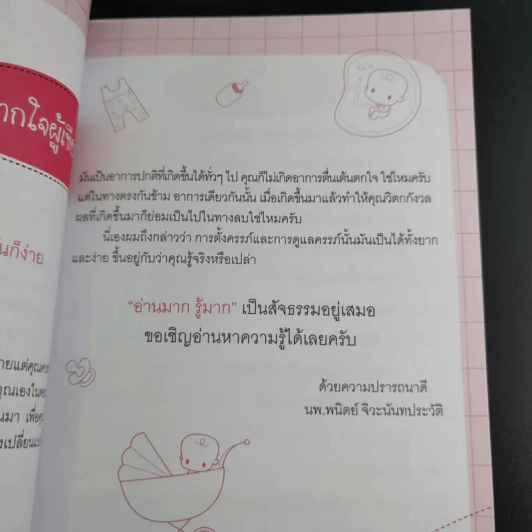 ากใจผู้เขี
มันเป็นอาการปกติที่เกิดขึ้นได้ทั่วๆ ไป คุณก็ไม่เกิดอาการตื่นเต้นตกใจ ใช่ไหมครับ
แต่ในทางตรงกันข้าม อาการเดียวกันนั้น เมื่อเกิดขึ้นมาแล้วทำให้คุณวิตกกังวล
ผลที่เกิดขึ้นมาก็ย่อมเป็นไปในทางลบใช่ไหมครับ
นี่เองผมถึงกล่าวว่า การตั้งครรภ์และการดูแลครรภ์นั้นมันเป็นได้ทั้งยาก
และง่าย ขึ้นอยู่กับว่าคุณรู้จริงหรือเปล่า
"อ่านมาก รู้มาก" เป็นสัจธรรมอยู่เสมอ
ขอเชิญอ่านหาความรู้ได้เลยครับ
ด้วยความปรารถนาดี
นพ.พนิตย์ จิวะนันทประวัติ
นก็ง่าย
ายแต่คุณ
ุณเองใน
นมา เพื่อ
งเปลี่ยน